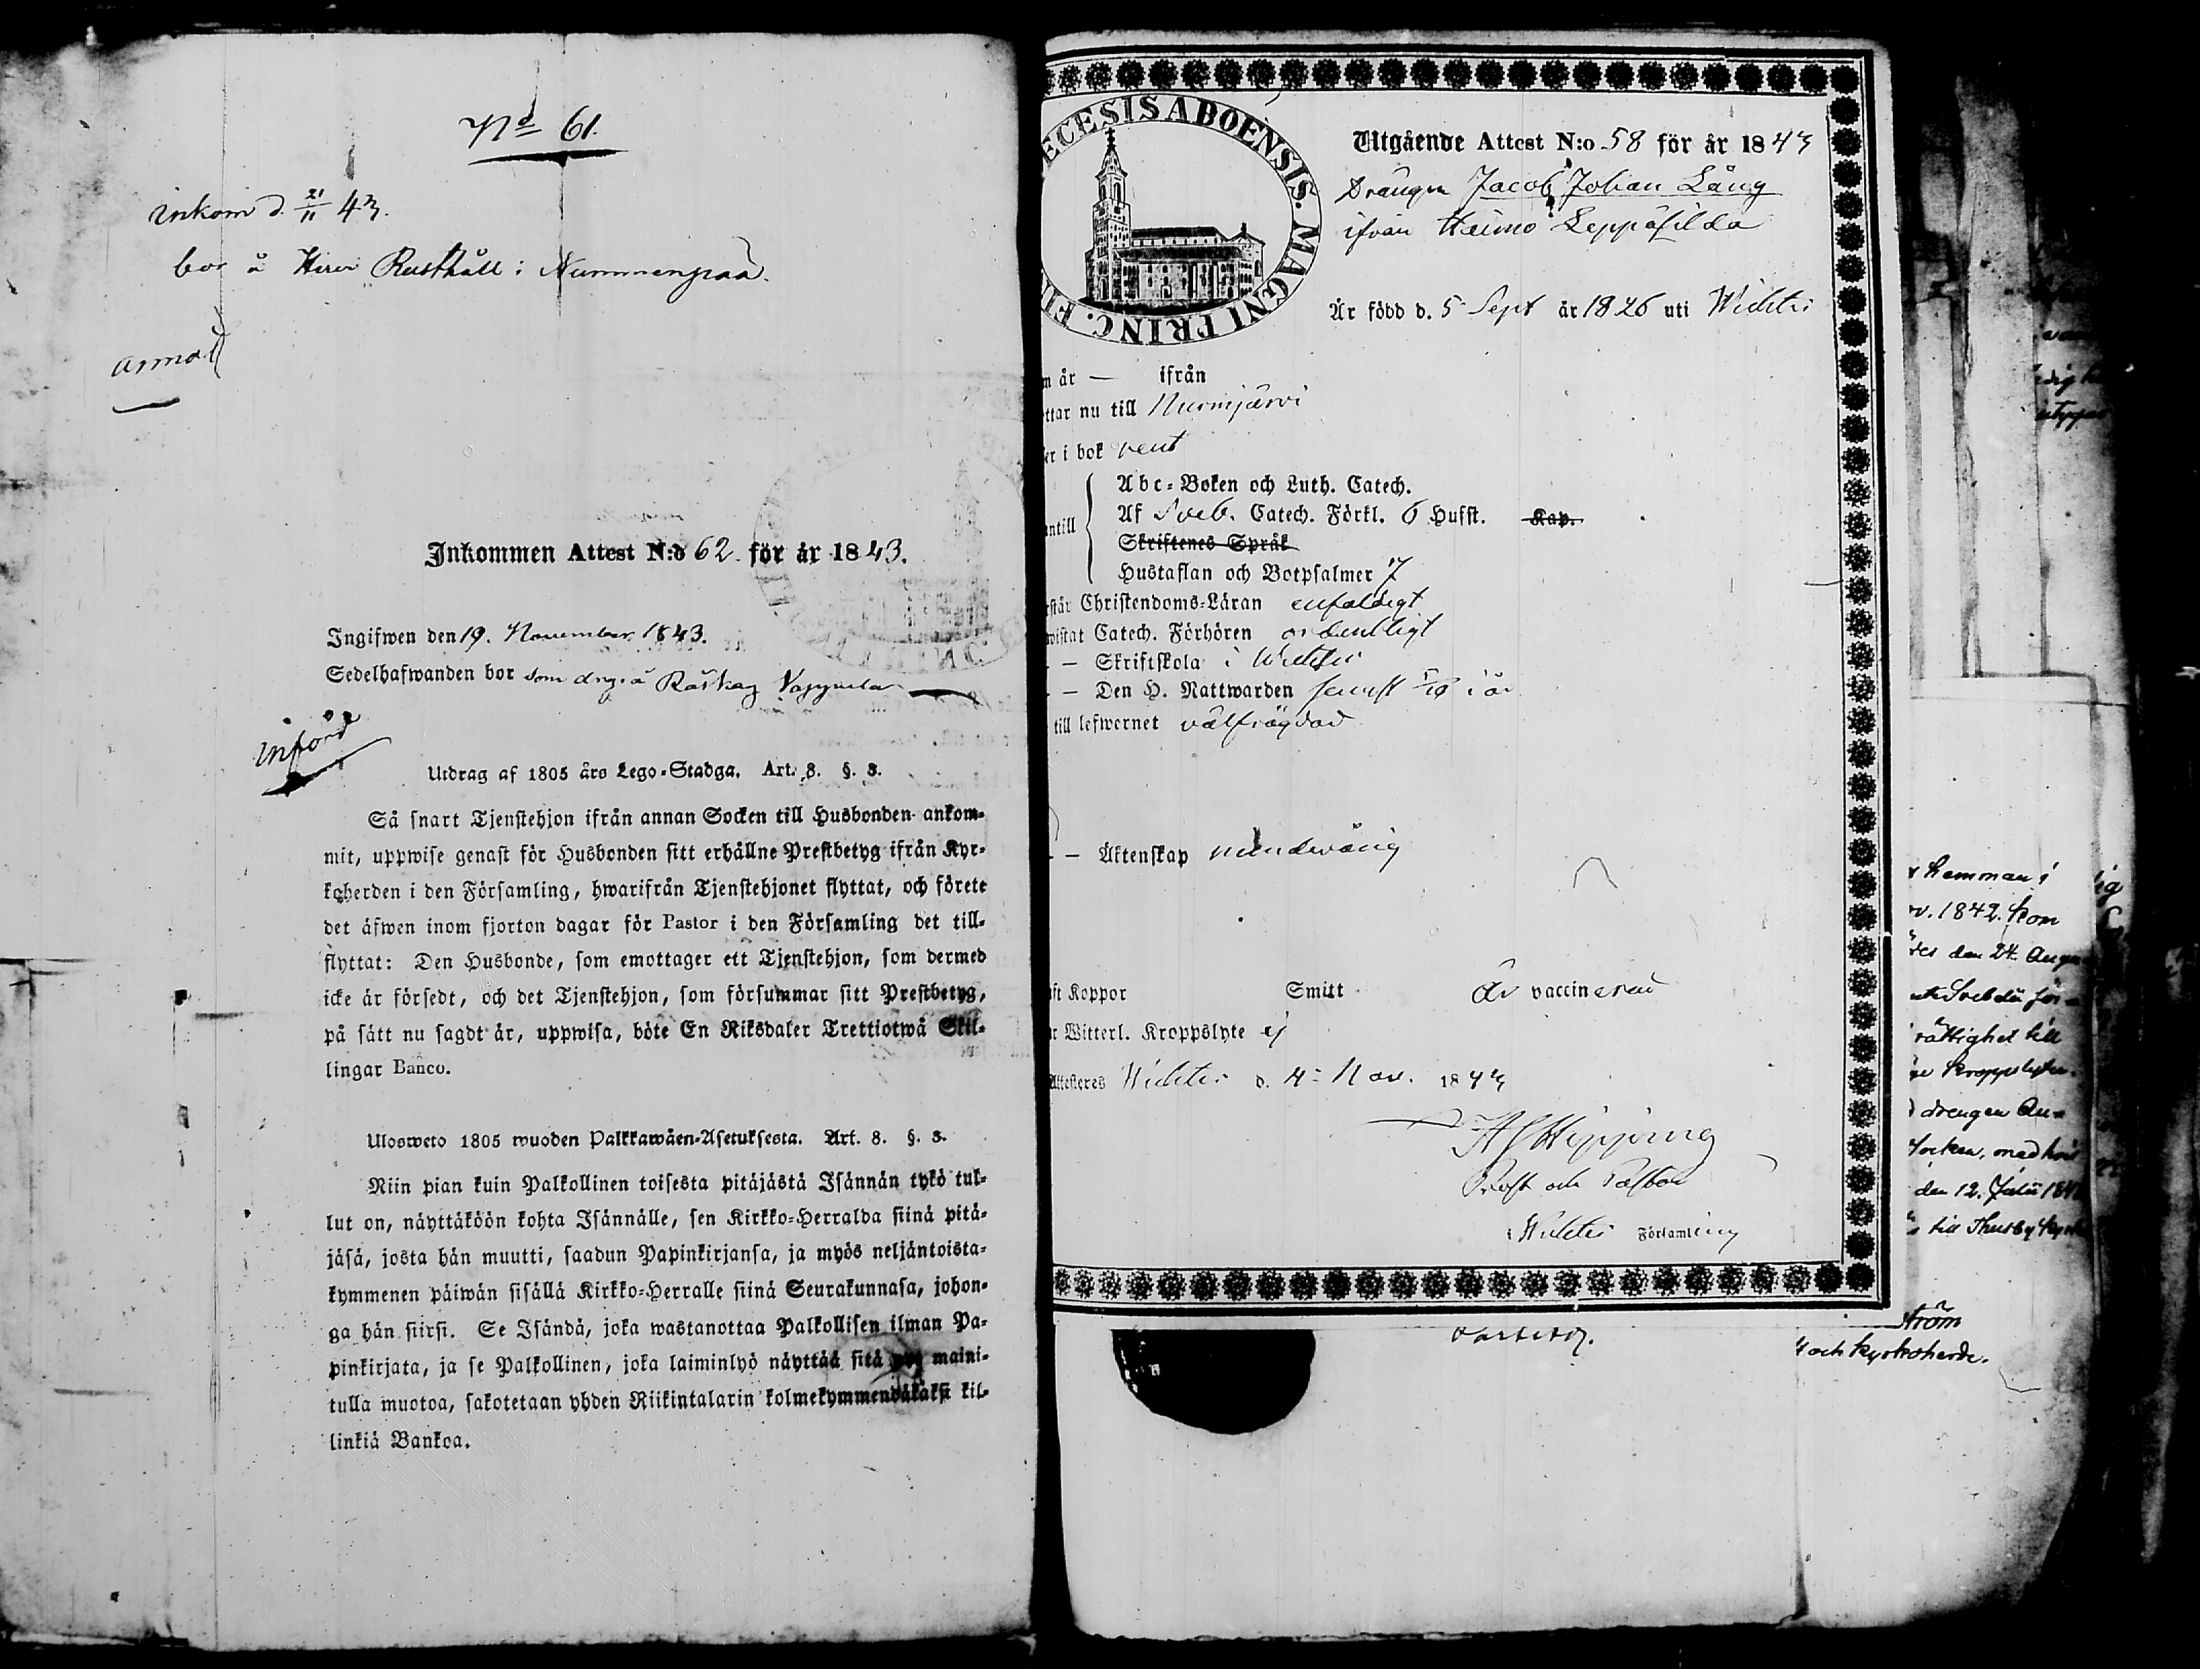 No 61.
inkom d. 21/11 43.
bor å Hirvi Rusthåll i Nummenpää.
anmäl
Inkommen Attest N:o 62 för år 1843.
Ingifwen den 19. November 1843.
Sedelhafwanden bor som drg å Vappula
införd
Utdrag af 1805 års Lego-Stadga. Art. 8. §. 3.
Så snart Tjenstehjon ifrån annan Socken till Husbonden ankom-
mit, uppwise genast för Husbonden sitt erhållne Prestbetyg ifrån Kyr-
koherden i den Församling, hwarifrån Tjenstehjonet flyttat, och förete
det äfwen inom fjorton dagar för Pastor i den Församling det till-
flyttat: Den Husbonde, som emottager ett Tjenstehjon, som dermed
icke är försedt, och det Tjenstehjon, som försummar sitt Prestbetyg,
på sätt nu sagdt är, uppwisa, böte En Riksdaler Trettiotwå Skil-
lingar Banco.
Ulosweto 1805 wuoden Palkkawäen-Asetuksesta. Art. 8. §. 3.
Niin pian kuin Palkollinen toisesta pitäjästä Isännän tykö tul-
lut on, näyttäköön kohta Isännälle, sen Kirkko-Herralda siinä pitä-
jäsä, josta hän muutti, saadun Papinkirjansa, ja myös neljäntoista-
kymmenen päiwän sisällä Kirkko-Herralle siinä Seurakunnasa, johon-
ga hän siirsi. Se Isändä, joka wastanottaa Palkollisen ilman Pa-
pinkirjata, ja se Palkollinen, joka laiminlyö näyttää sitä nyt maini-
tulla muotoa, sakotetaan yhden Riikintalarin kolmekymmendäkaksi kil-
linkiä Bankoa.
ECESIS ABOENSIS. MAGNI PRINC. FI
Utgående Attest N:o 58 för år 1843
Drängen Jacob Johan Lång
ifrån Haimo Leppäsilda
Är född d. 5 Sept år 1826 uti Wichtis
m år — ifrån
ttar nu till Nurmijärvi
er i bok rent
Abc-Boken och Luth. Catech.
antill Af Sveb. Catech. Förkl. 6 Hufst. Kap.
Skriftenes Språk
Hustaflan och Botpsalmer 7
rstår Christendoms-Läran enfaldigt
wistat Catech. Förhören ordentligt
- — Skriftskola i Wichtis
- — Den H. Nattwarden senast i år
till lefwernet välfrägdad
- — Äktenskap mindrårig
ft Koppor Smitt Är vaccinerad
r Witterl. Kroppslyte ej
Attesteres Wichtis d. 4 Nov. 1843
Hipping
Prost och Pastor
i Wichtis Församling
hemman i
v. 1842. kom
res den 24. Augu
rättighet till
kroppslyten.
drengen An-
Socken, med
den 12. Julii 184
till Thusby
ström
och kyrkoherde.